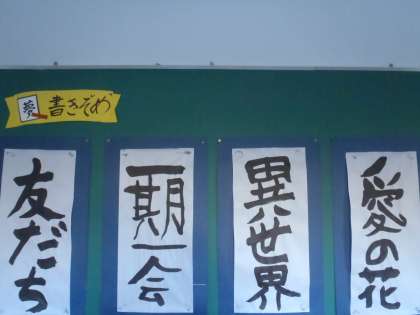 夢 書きぞめ
愛の花
異世界
一期一会
友だち